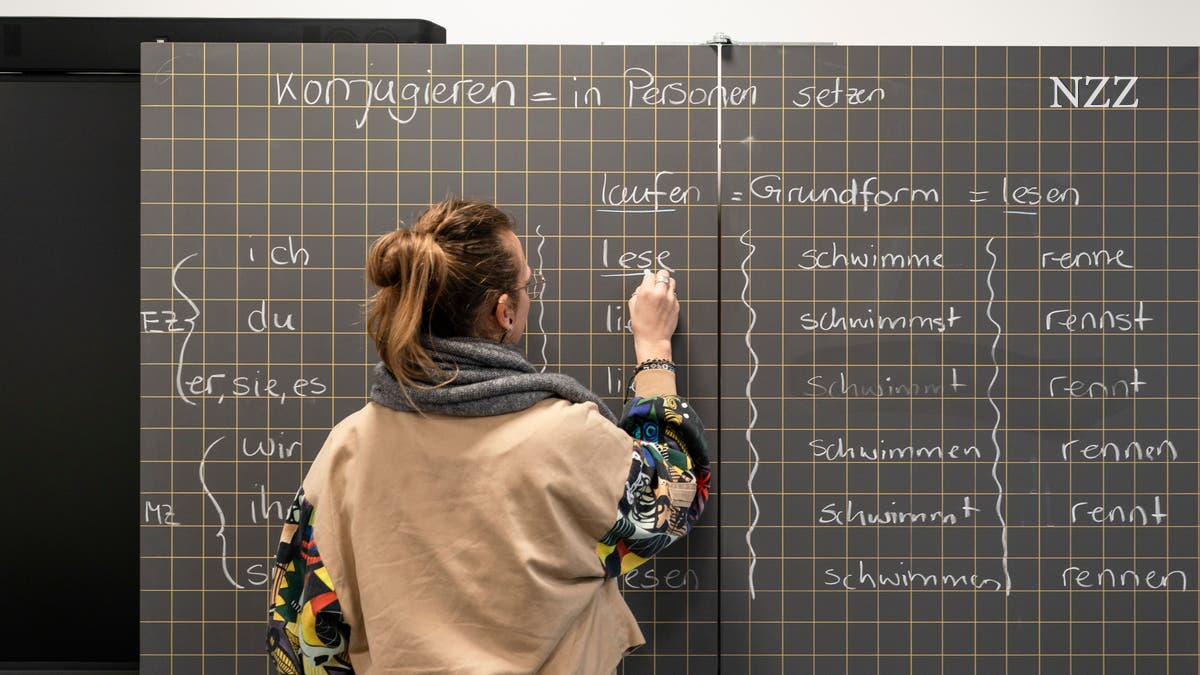 NZZ
Konjugieren = in Personen setzen
laufen = Grundform = lesen
ich lese schwimme renne
EZ du li schwimmst rennst
er, sie, es li schwimmt rennt
wir schwimmen rennen
MZ ih schwimmt rennt
s esen schwimmen rennen